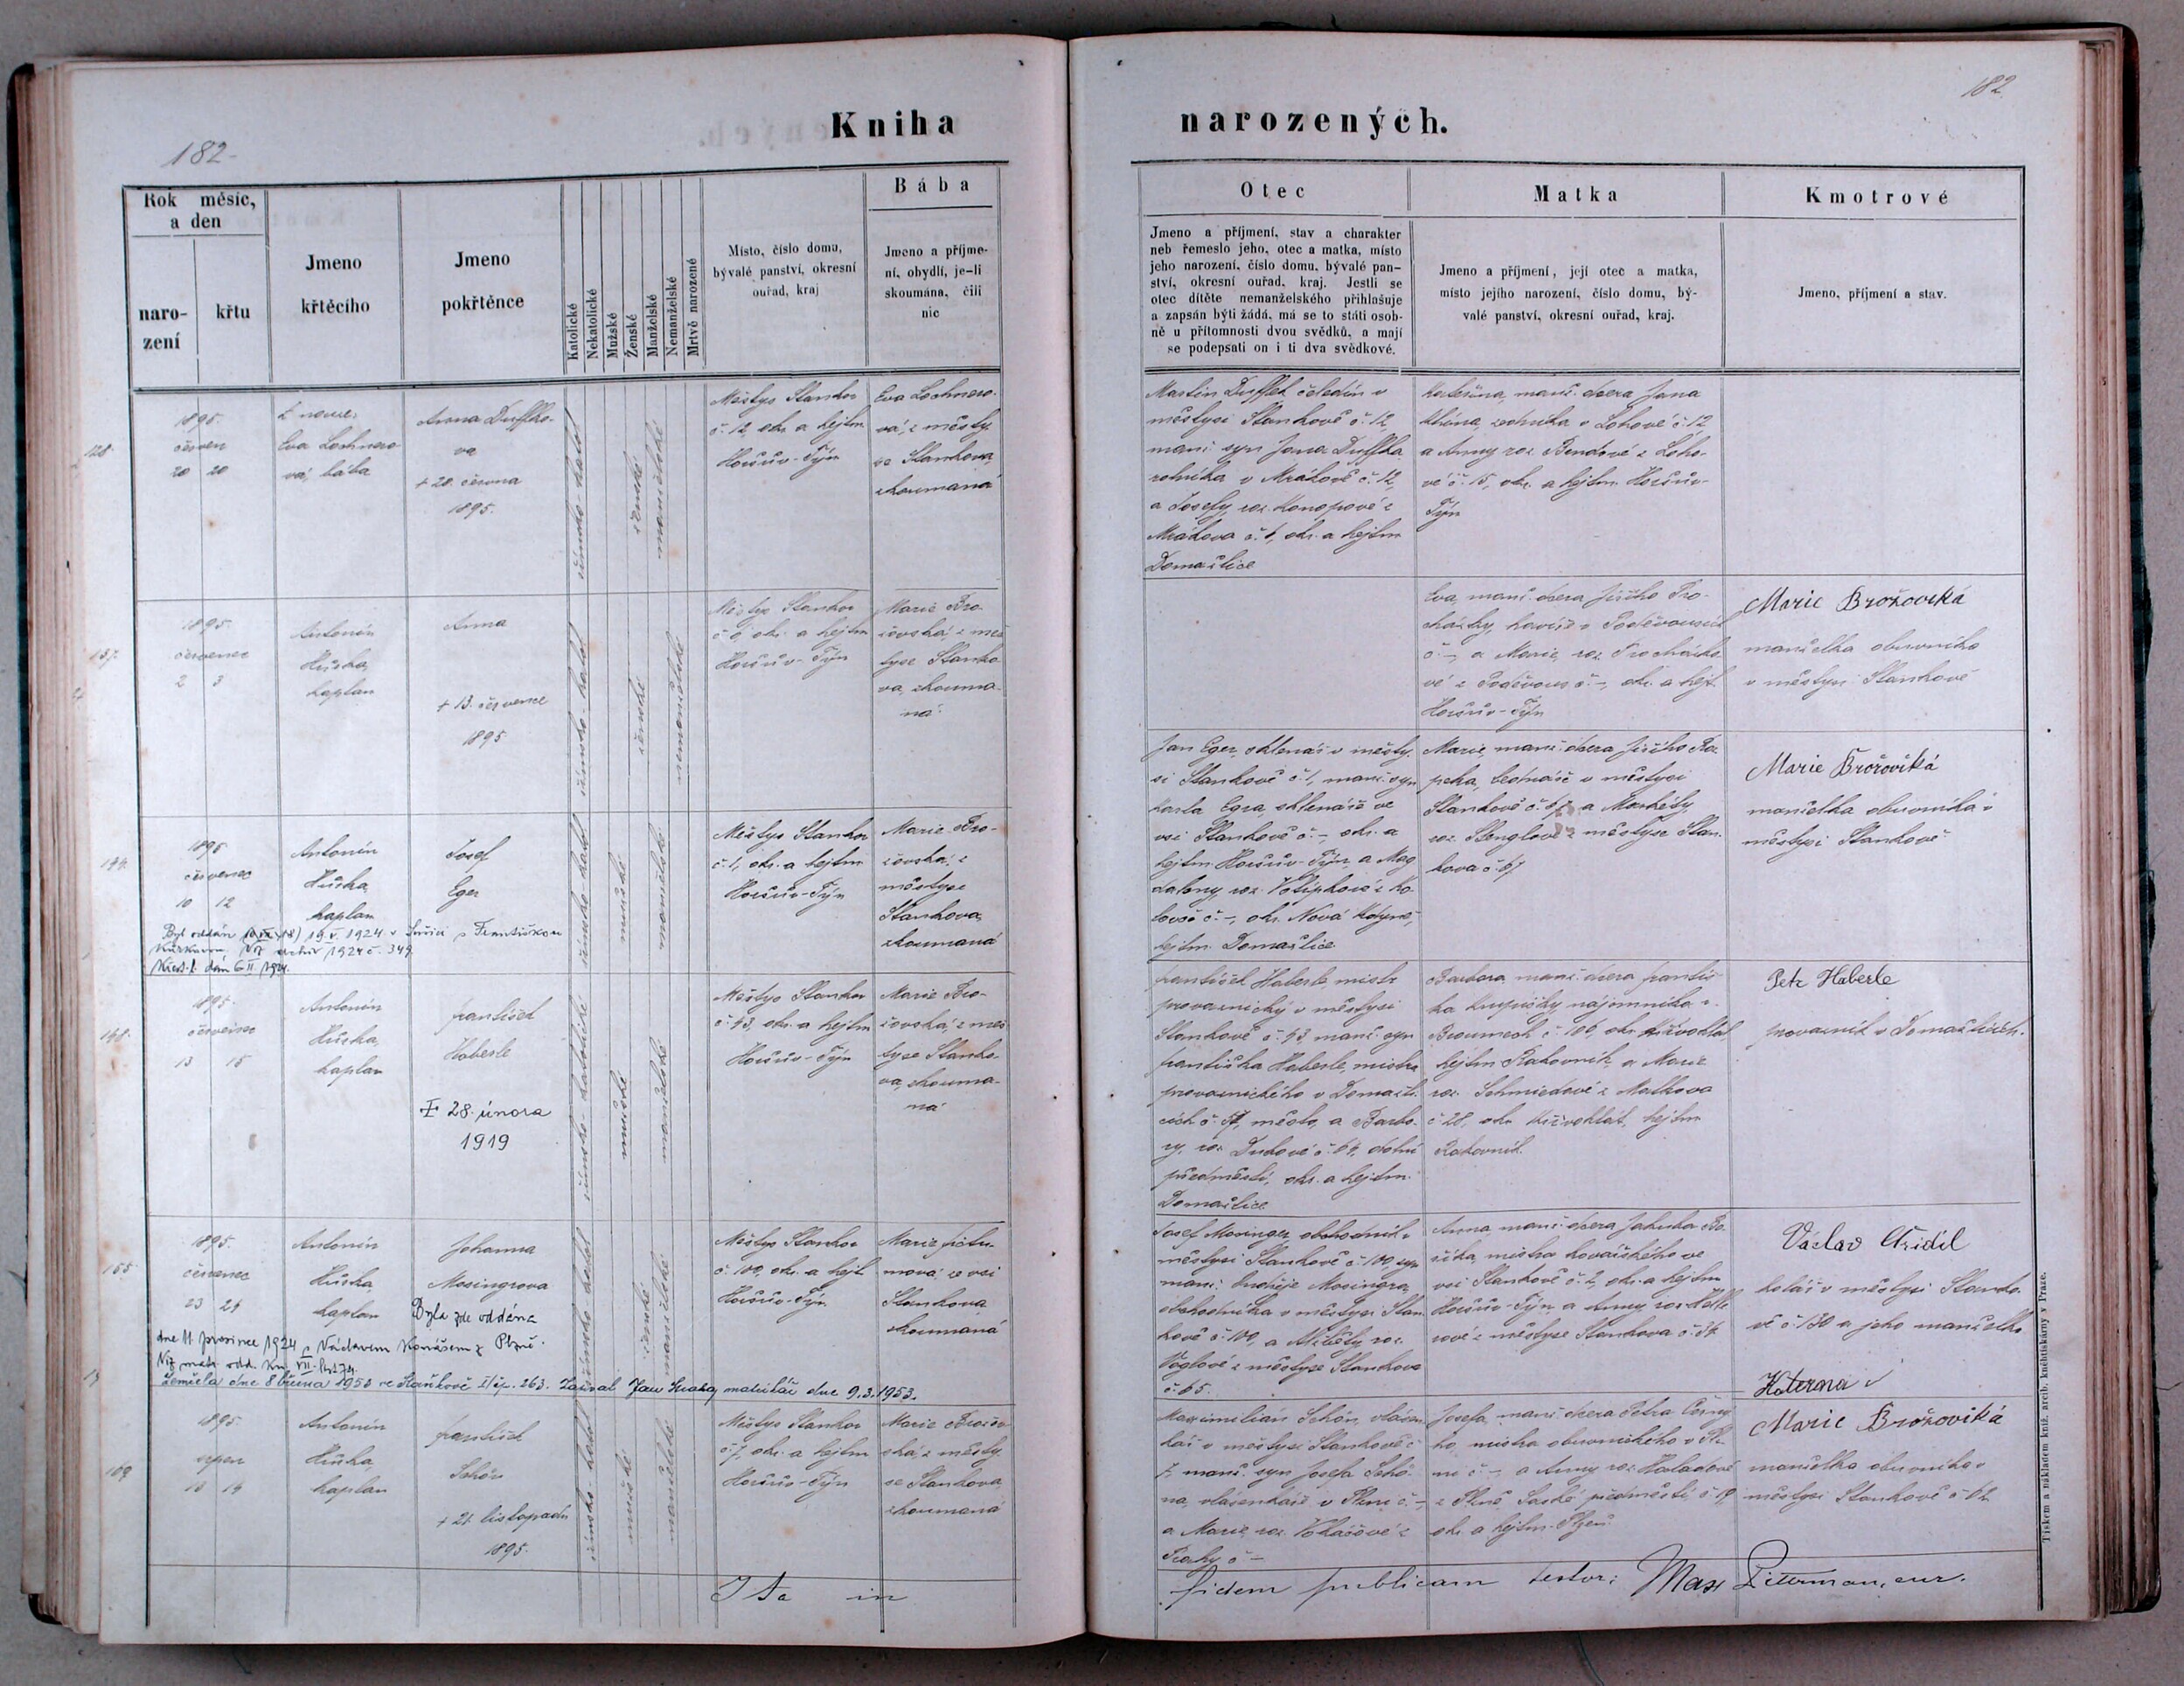 182
182
Kniha
narozených.
Rok měsíc,
a den
naro-
zení
křtu
Jmeno
křtěcího
Jmeno
pokřtěnce
Katolické
Nekatolické
Mužské
Ženské
Manželské
Nemanželské
Mrtvě narozené
Místo, číslo domu,
bývalé panství, okresní
ouřad, kraj
Bába
Jmeno a příjme-
ní, obydlí, je-li
skoumána, čili
nic
Otec
Jmeno a příjmení, stav a charakter
neb řemeslo jeho, otec a matka, místo
jeho narození, číslo domu, bývalé pan-
ství, okresní ouřad, kraj. Jestli se
otec dítěte nemanželského přihlašuje
a zapsán býti žádá, má se to státi osob-
ně u přítomnosti dvou svědků, a mají
se podepsati on i ti dva svědkové.
Matka
Jmeno a příjmení, její otec a matka,
místo jejího narození, číslo domu, bý-
valé panství, okresní ouřad, kraj.
Kmotrové
Jmeno, příjmení a stav.
128.
1895.
červen
20 20
Eva Lochnero
vá, bába
Anna Duffko-
va
+ 20. června
1895.
římsko-katol
ženské
manželské
Městys Stankov
č. 12, okr. a hejtm
Horšův-Týn
Eva Lochnero-
vá, z městy
se Stankova,
zkoumaná
Martin Duffek čeledín v
městysi Stankově č. 12,
manž. syn Jana Duffka
rolníka v Mrákově č. 12,
a Josefy, roz. Konopové z
Mrákova č. 1, okr. a hejtm
Domažlice
Kateřina, manž. dcera Jana
v Lohově č. 12
a Anny roz. Bendové z Loho-
vé č. 15, okr. a hejtm. Horšův-
Týn
137.
1895.
červenec
2 3
Antonín
Hůrka,
kaplan
Anna
+ 13. července
1895
římsko-katol
ženské
nemanželské
Městys Stankov
č. 6, okr. a hejtm
Horšův-Týn
Marie Bro-
žovská, z mě
tyse Stanko
va, zkouma-
ná
Eva, manž. dcera Jiřího Pro-
cházky, havíře v
č. -, a Marie, roz. Procházko
vé z č. -, okr. a hejt.
Horšův-Týn
Marie Brožovská
manželka obuvníka
v městysi Stankově
144.
1895
červenec
10 12
Antonín
Hůrka,
kaplan
Josef
Eger
římsko-katol
mužské
manželské
Městys Stankov
č. 1, okr. a hejtm
Horšův-Týn
Marie Bro-
žovská, z
městyse
Stankova,
zkoumaná
Jan Eger, sklenář v městy-
si Stankově č. 1, manž. syn
Karla Egra, sklenáře ve
vsi Stankově č. -, okr. a
hejtm. Horšův-Týn, a Mag
daleny, roz. z Ko-
č. -, okr. Nová Kdyně,
hejtm. Domažlice
Marie manž. dcera Jiřího
v městysi
Stankově č. 67 a Markéty,
roz. Stenglové z městyse Stan-
kova č. 67
Marie Brožovská
manželka obuvníka v
městysi Stankově
Byl oddán 19.V. 1924 v Sušici s Františkou
1924 č. 349.
Křest. l. dán 6.II. 1924.
148.
1895.
červenec
13 15
Antonín
Hůrka,
kaplan
František
Haberle
28. února
1919
římsko-katolické
mužské
manželské
Městys Stankov
č. 43, okr. a hejtm
Horšův-Týn
Marie Bro-
žovská, z měs
tyse Stanko
va, zkouma-
ná
František Haberle, mistr
provaznický v městysi
Stankově č. 43 manž. syn
Františka Haberle, mistra
provaznického v Domažli
cích č. 57, město, a Barbo-
ry, roz. Dubové č. 64, dolní
předměstí, okr. a hejtm.
Domažlice
Barbora, manž. dcera Františ-
ka Krupičky, nájemníka v
Broumech č. 100, okr. Křivoklát,
hejtm. Rakovník, a Marie
roz. Schmiedové z
č. 28, okr. Křivoklát, hejtm
Rakovník.
Petr Haberle
provazník v Domažlicích.
155.
1895.
červenec
23 24
Antonín
Hůrka,
kaplan
Johanna
Mosingrova
Byla zde oddána
dne 11. prosince 1924 s Václavem z Plzně.
Viz matr. odd. kn. VII.
Zemřela dne 8 března 1953 ve Staňkově I/čp. 263. Zapsal Jan matrikář dne 9.3.1953.
římsko-katol
ženské
manželské
Městys Stankov
č. 100, okr. a hejt
Horšův-Týn
Marie
mová ze vsi
Stankova
zkoumaná
Josef Mosinger, obchodník v
městysi Stankově č. 100, syn
manž. Mosingra,
obchodníka v městysi Stan
kově č. 100, a roz.
Voglové z městyse Stankova
č. 65.
Anna, manž. dcera Jakuba
mistra kovářského ve
vsi Stankově č. 2, okr. a hejtm
Horšův-Týn, a Anny, roz.
rové z městyse Stankova č. 34
Václav Křidil
kolář v městysi Stanko-
vě č. 130 a jeho manželka
Katerina
169
1895.
srpen
13 14
Antonín
Hůrka,
kaplan
František
Schön
+ 21. listopadu
1895.
římsko-katol
mužské
manželské
Městys Stankov
č. 7, okr. a hejtm
Horšův-Týn
Marie Brožov-
ská, z městy-
se Stankova,
zkoumaná
Maximilián Schön, vlásen-
kář v městysi Stankově č.
7, manž. syn Josefa Schö-
na, vlásenkáře v Plzni č. -,
a Marie, roz. z
Prahy č. -
Josefa, manž. dcera Petra Černé-
ho, mistra obuvnického v Plz-
ni č. -, a Anny roz. Haladové
z Plzně, Saské předměstí, č. 19,
okr. a hejtm. Plzeň.
Marie Brožovská
manželka obuvníka v
městysi Stankově č. 62
Ita in fidem publicam testor: Max Pitterman, cur.
Tiskem a nákladem kníž. arcib. knihtiskárny v Praze.